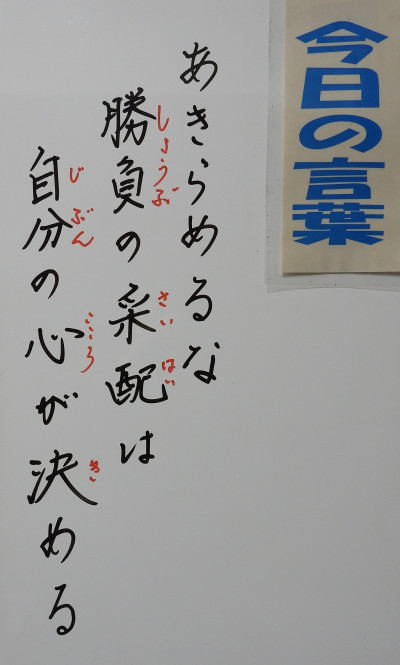 今日の言葉
あきらめるな
勝負の采配は
しょうぶ さい はい
自分の心が決める
じ ぶん こころ き